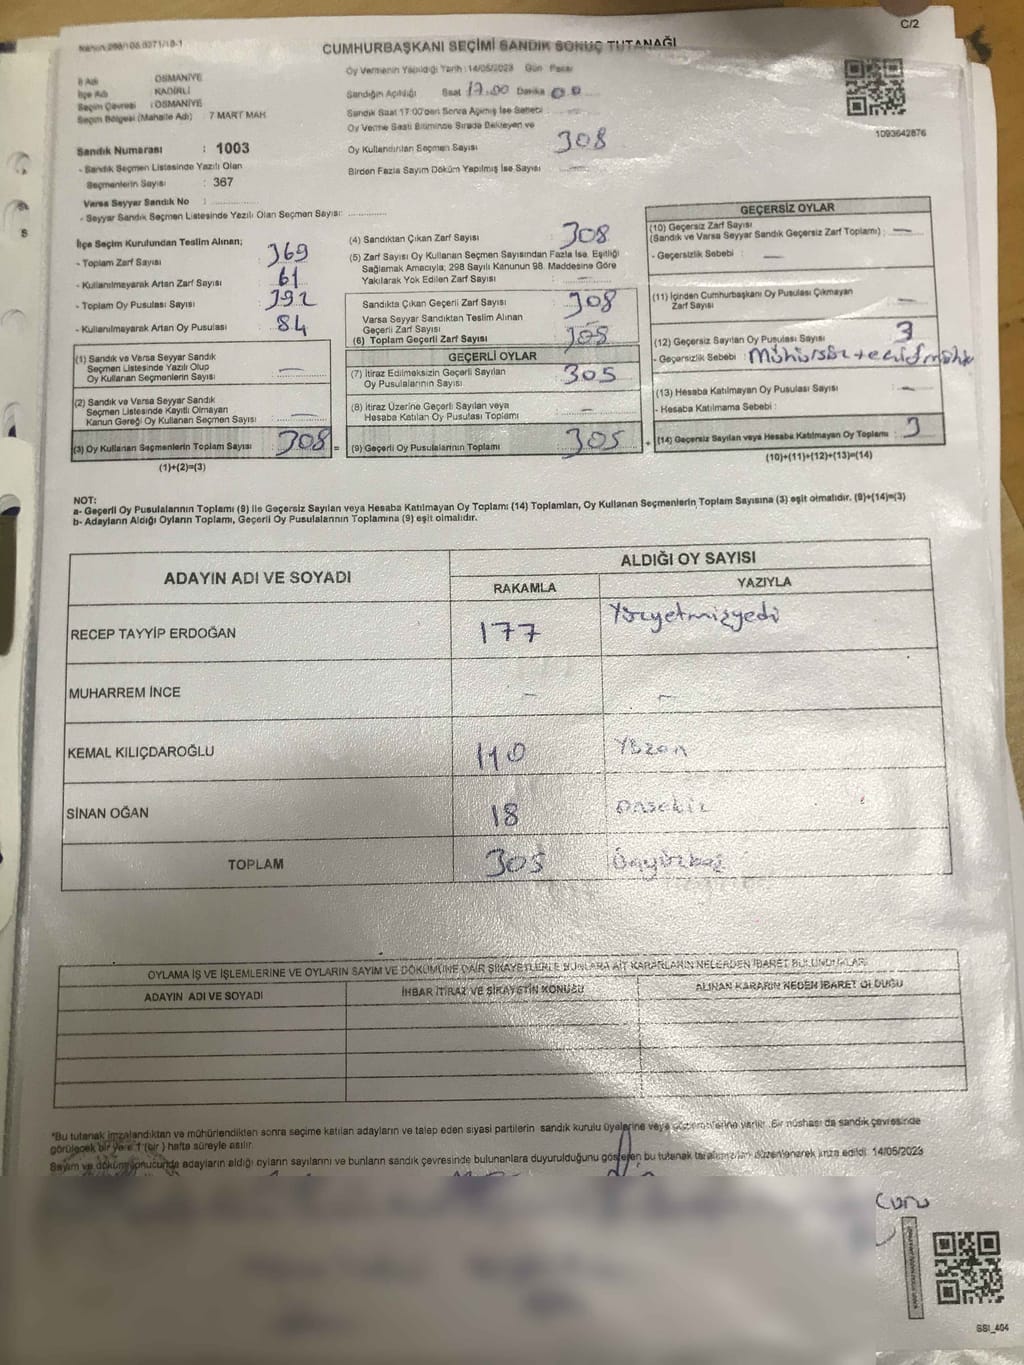 C/2
CUMHURBAŞKANI SEÇİMİ SANDIK SONUÇ TUTANAĞI
İl Adı OSMANİYE
İlçe Adı KADİRLİ
Seçim Çevresi : OSMANİYE
Seçim Bölgesi (Mahalle Adı) : 7 MART MAH
Sandık Numarası : 1003
- Sandık Seçmen Listesinde Yazılı Olan
Seçmenlerin Sayısı : 367
Varsa Seyyar Sandık No :
- Seyyar Sandık Seçmen Listesinde Yazılı Olan Seçmen Sayısı:
Oy Vermenin Yapıldığı Tarih : 14/05/2023 Gün Pazar
Sandığın Açıldığı Saat 17.00 Dakika 00
Sandık Saat 17:00'den Sonra Açılmış İse Sebebi :
Oy Verme Saati Bitiminde Sırada Bekleyen ve
Oy Kullandırılan Seçmen Sayısı 308
Birden Fazla Sayım Döküm Yapılmış İse Sayısı —
1093642876
İlçe Seçim Kurulundan Teslim Alınan;
- Toplam Zarf Sayısı : 369
- Kullanılmayarak Artan Zarf Sayısı : 61
- Toplam Oy Pusulası Sayısı : 392
- Kullanılmayarak Artan Oy Pusulası : 84
(1) Sandık ve Varsa Seyyar Sandık
Seçmen Listesinde Yazılı Olup
Oy Kullanan Seçmenlerin Sayısı : —
(2) Sandık ve Varsa Seyyar Sandık
Seçmen Listesinde Kayıtlı Olmayan
Kanun Gereği Oy Kullanan Seçmen Sayısı : —
(3) Oy Kullanan Seçmenlerin Toplam Sayısı : 308 =
(1)+(2)=(3)
(4) Sandıktan Çıkan Zarf Sayısı : 308
(5) Zarf Sayısı Oy Kullanan Seçmen Sayısından Fazla İse, Eşitliği
Sağlamak Amacıyla; 298 Sayılı Kanunun 98. Maddesine Göre
Yakılarak Yok Edilen Zarf Sayısı : —
Sandıkta Çıkan Geçerli Zarf Sayısı : 308
Varsa Seyyar Sandıktan Teslim Alınan
Geçerli Zarf Sayısı
(6) Toplam Geçerli Zarf Sayısı : 308
GEÇERLİ OYLAR
(7) İtiraz Edilmeksizin Geçerli Sayılan
Oy Pusulalarının Sayısı : 305
(8) İtiraz Üzerine Geçerli Sayılan veya
Hesaba Katılan Oy Pusulası Toplamı : —
(9) Geçerli Oy Pusulalarının Toplamı : 305 +
GEÇERSİZ OYLAR
(10) Geçersiz Zarf Sayısı
(Sandık ve Varsa Seyyar Sandık Geçersiz Zarf Toplamı) : —
- Geçersizlik Sebebi : —
(11) İçinden Cumhurbaşkanı Oy Pusulası Çıkmayan
Zarf Sayısı —
(12) Geçersiz Sayılan Oy Pusulası Sayısı : 3
- Geçersizlik Sebebi :
(13) Hesaba Katılmayan Oy Pusulası Sayısı : —
- Hesaba Katılmama Sebebi :
(14) Geçersiz Sayılan veya Hesaba Katılmayan Oy Toplamı : 3
(10)+(11)+(12)+(13)=(14)
NOT:
a- Geçerli Oy Pusulalarının Toplamı (9) ile Geçersiz Sayılan veya Hesaba Katılmayan Oy Toplamı (14) Toplamları, Oy Kullanan Seçmenlerin Toplam Sayısına (3) eşit olmalıdır. (9)+(14)=(3)
b- Adayların Aldığı Oyların Toplamı, Geçerli Oy Pusulalarının Toplamına (9) eşit olmalıdır.
ADAYIN ADI VE SOYADI ALDIĞI OY SAYISI
RAKAMLA YAZIYLA
RECEP TAYYİP ERDOĞAN 177 Yüzyetmişyedi
MUHARREM İNCE – –
KEMAL KILIÇDAROĞLU 110 Yüzon
SİNAN OĞAN 18 onsekiz
TOPLAM 305 Üçyüzbeş
OYLAMA İŞ VE İŞLEMLERİNE VE OYLARIN SAYIM VE DÖKÜMÜNE DAİR ŞİKAYETLERLE BUNLARA AİT KARARLARIN NELERDEN İBARET BULUNDUKLARI
ADAYIN ADI VE SOYADI İHBAR İTİRAZ VE ŞİKAYETİN KONUSU ALINAN KARARIN NEDEN İBARET OLDUĞU
*Bu tutanak imzalandıktan ve mühürlendikten sonra seçime katılan adayların ve talep eden siyasi partilerin sandık kurulu üyelerine veya müşahitlerine verilir. Bir nüshası da sandık çevresinde
görülecek bir yere 1 (bir) hafta süreyle asılır.
Sayım ve döküm sonucunda adayların aldığı oyların sayılarını ve bunların sandık çevresinde bulunanlara duyurulduğunu gösteren bu tutanak tarafımızdan düzenlenerek imza edildi. 14/05/2023
SSI_404